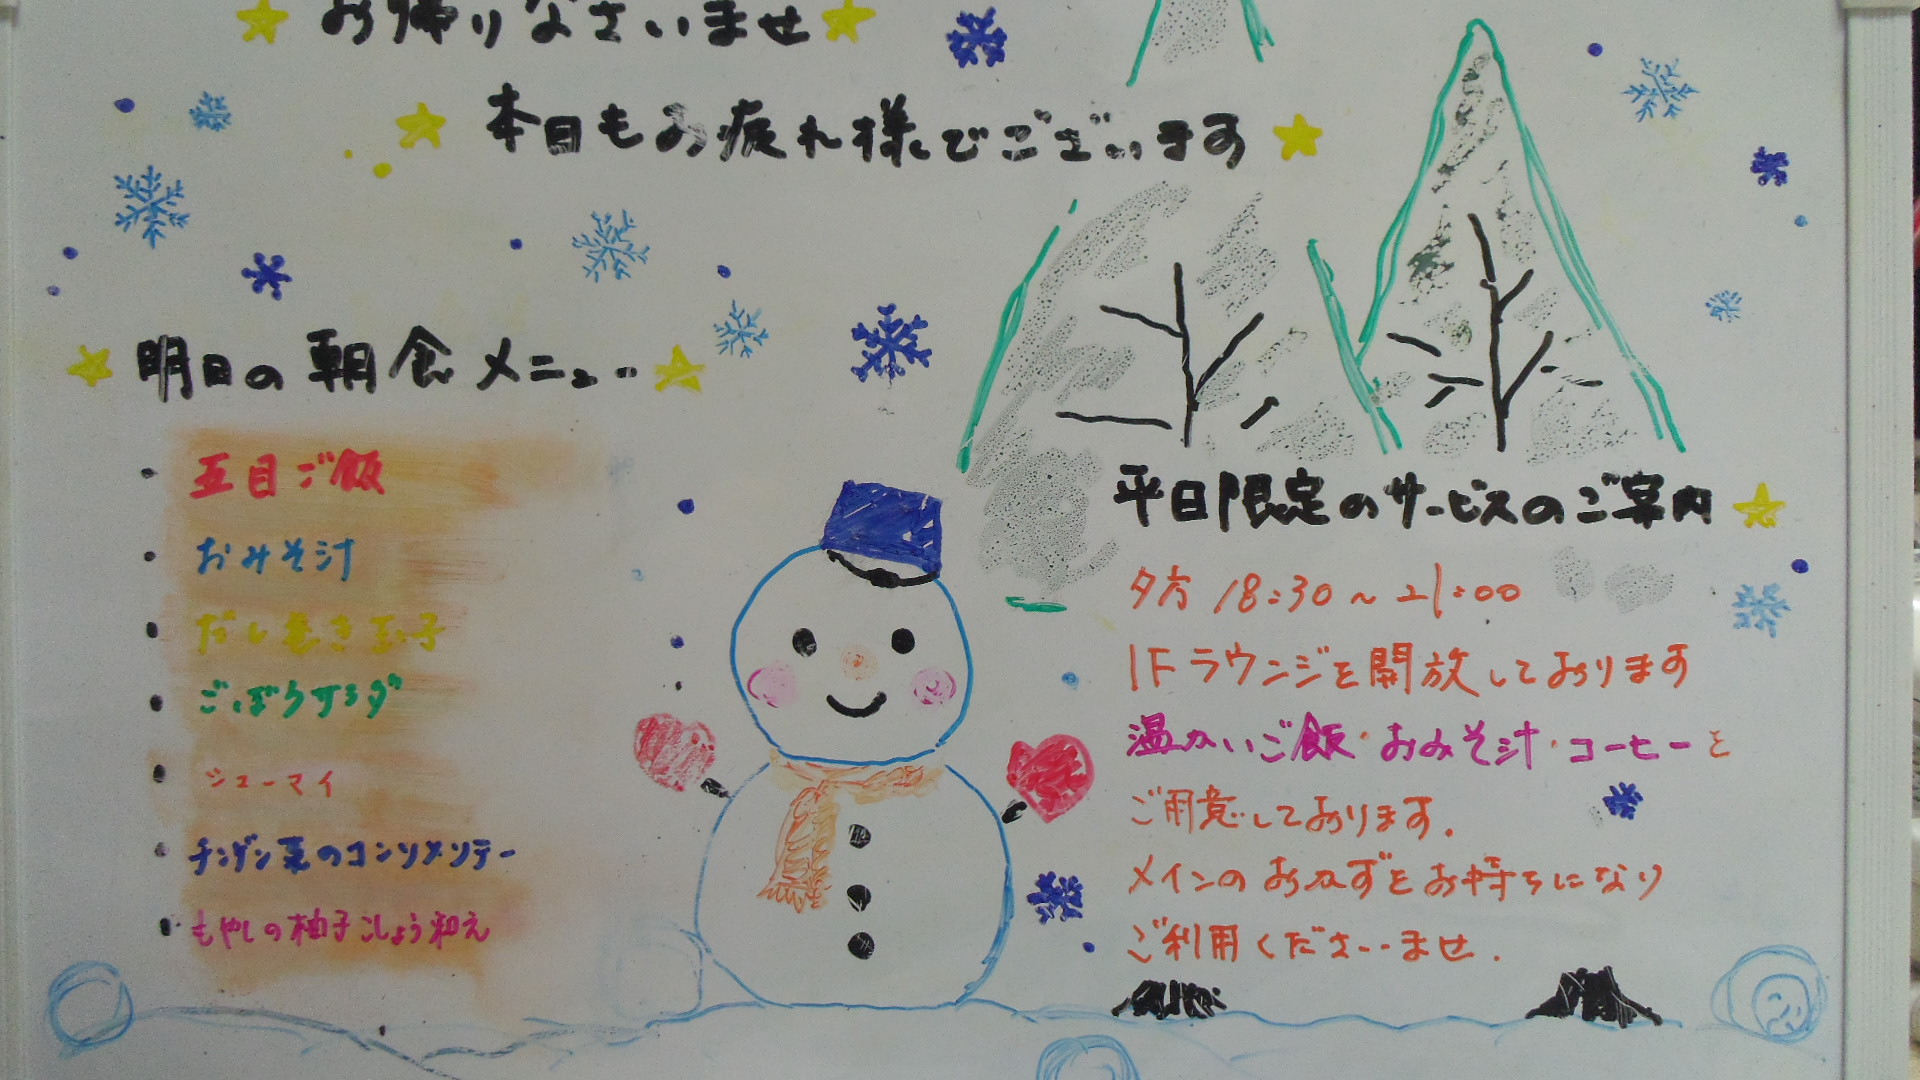 お帰りなさいませ
本日もお疲れ様でございます
明日の朝食メニュー
・五目ご飯
・おみそ汁
・だし巻き玉子
・ごぼうサラダ
・シューマイ
・チンゲン菜のコンソメソテー
・もやしの柚子こしょう和え
平日限定のサービスのご案内
夕方 18:30～21:00
1Fラウンジを開放しております
温かいご飯・おみそ汁・コーヒーと
ご用意しております.
メインのおかずをお持ちになり
ご利用くださいませ.